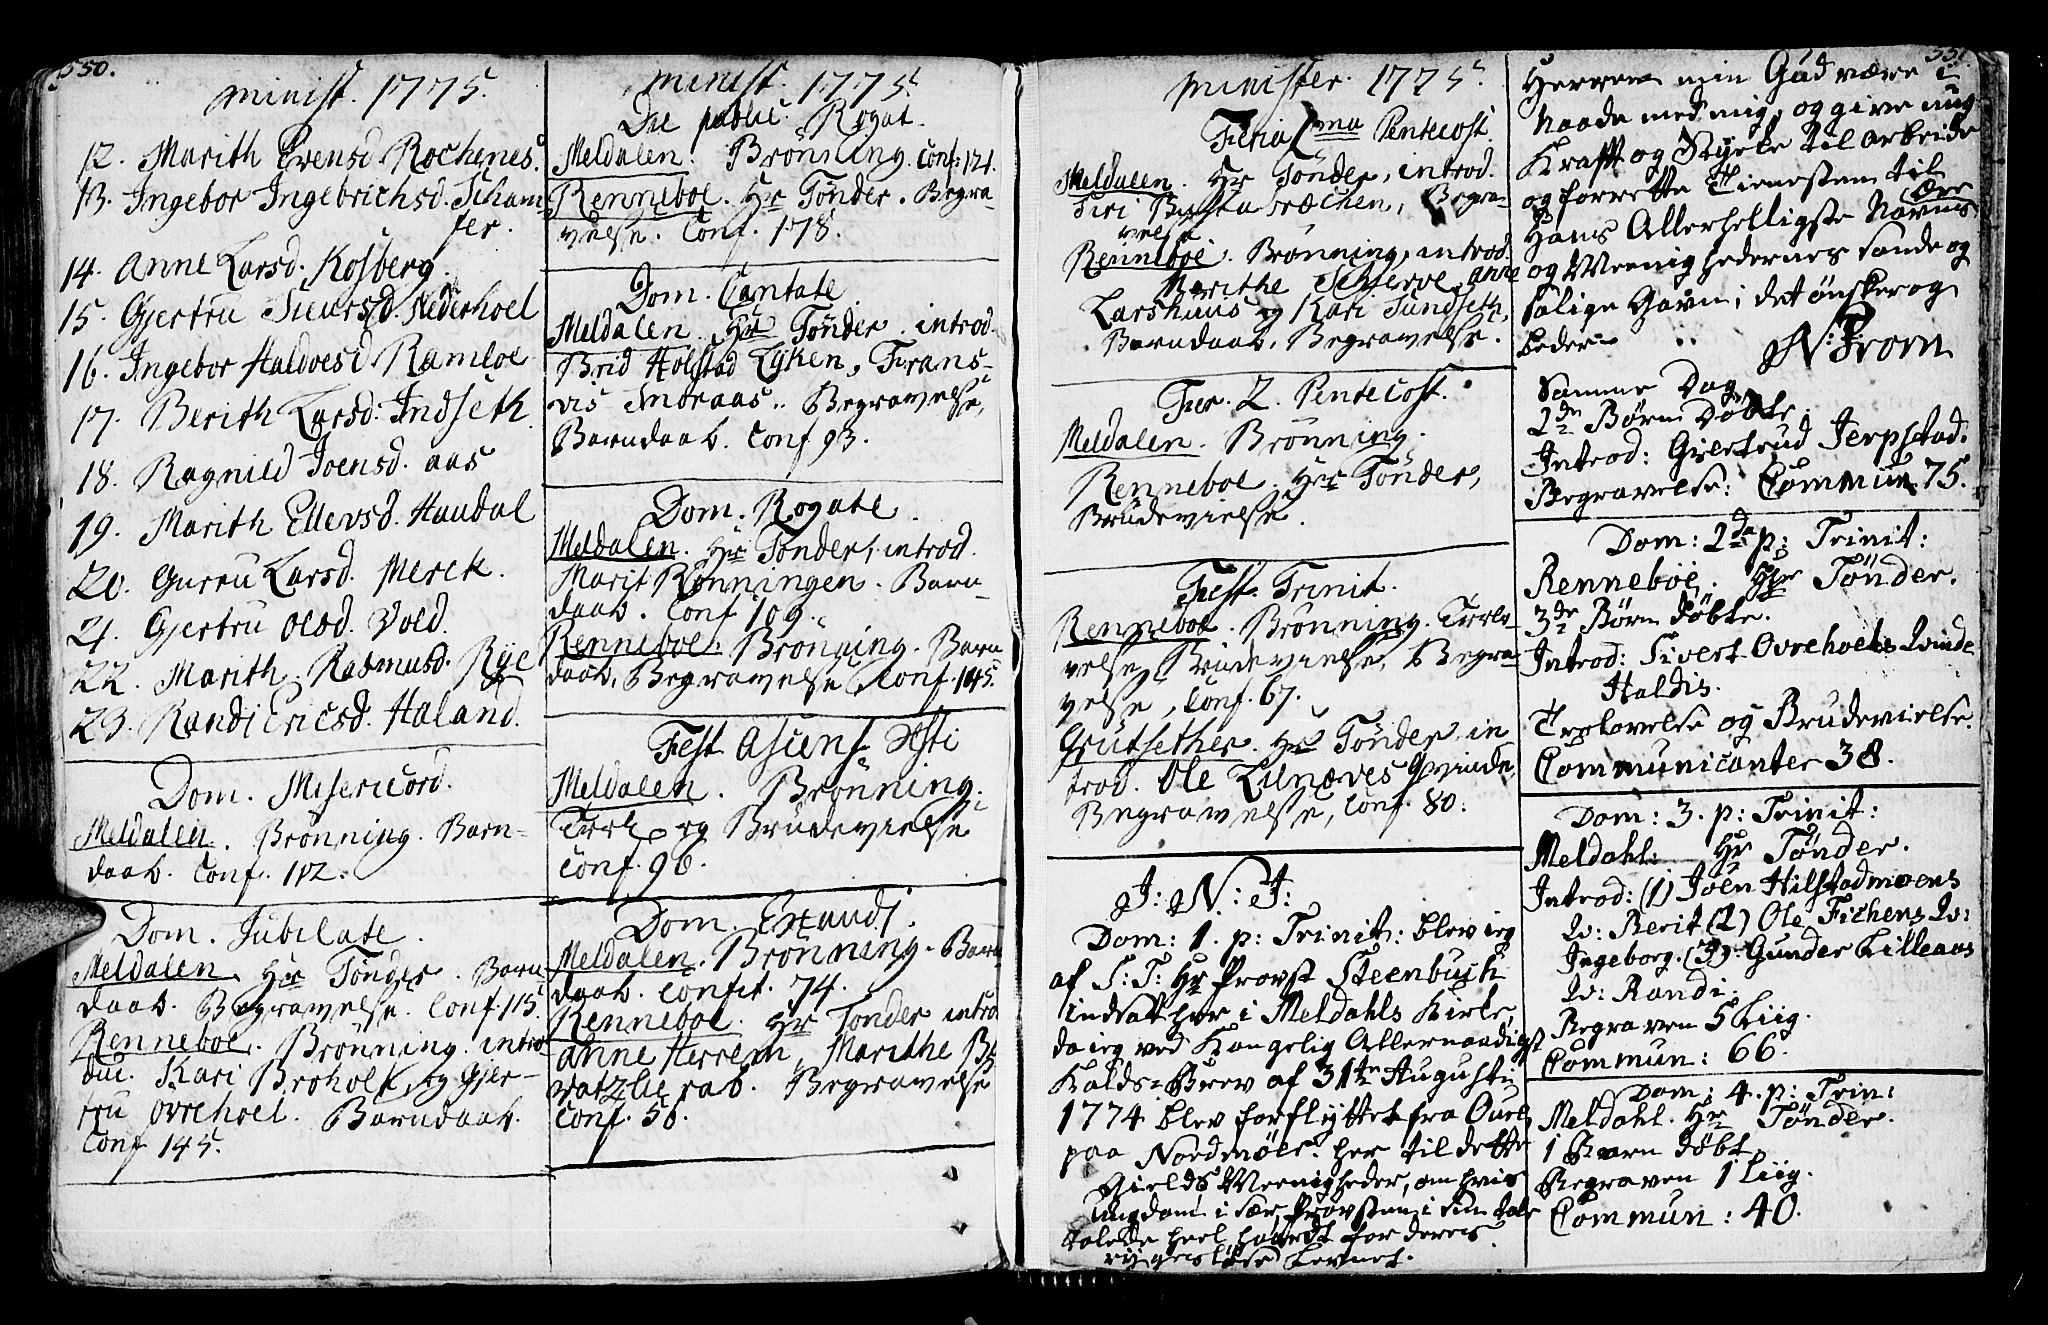 550.
minist. 1775.
12. Marith Evensd Rochenes.
13. Ingebor Ingebrichsd. Skam-
fer.
14. Anne Larsd. Kosberg.
15. Gjertru Siursd. Nederhoel
16. Ingebor Haldoesd Ramloe
17. Berith Larsd. Indseth
18. Ragnild Joensd. aas
19. Marith Ellevsd. Haudal
20. Gurru Larsd. Merck.
21. Gjertru Olsd. Vold.
22. Marith Rasmusd. Rye
23. Randi Ericsd. Haland.
Dom. Misericord.
Meldalen. Brönning. Barn-
daab. Conf. 112.
Dom. Jubilate.
Meldalen. Hr Tönder. Barn
daab. Begravelse. Conf. 115.
Renneboe. Brönning. introd
duc. Kari Broholt, og Gjer-
tru ovrehoel. Barndaab.
Conf 145.
minist. 1775.
Die public. Rogat.
Meldalen. Brönning. Conf: 121.
Renneboe. Hr Tönder. Begra-
velse. Conf. 178.
Dom. Cantate.
Meldalen. Hr Tönder. introd.
Brid Holstad Lyken, Frans-
vis moraas. Begravelse,
Barndaab. Conf 93.
Dom. Rogate.
Meldalen. Hr Tönder, introd.
Marit Rönningen. Barn-
daab. Conf 109.
Renneboe. Brönning. Barn
daab, Begravelse Conf. 145.
Fest Ascens Xsti
Meldalen. Brönning.
Trol. og Brudevielse
Conf. 96.
Dom. Exaudi.
Meldalen. Brönning. Barn-
daab. Confit. 74.
Renneboe. Hr Tonder introd
anne Herrem, Marithe
Begravelse
Conf. 56.
minister. 1775.
Feria 1ma Pentecost.
Meldalen. Hr Tönder, introd.
Siri Begra-
velse
Renneboe. Brönning, introd.
Marithe Skjerve, anne
Larshuus og Kari Sundseth,
Barndaab, Begravelse.
Fer. 2. Pentecost.
Meldalen. Brönning.
Renneboe. Hr Tönder,
Brudevielse.
Fest. Trinit.
Renneboe. Brönning. Trolo-
velse, Brudevielse, Begra-
velse, Conf. 67.
Grutsether. Hr Tönder in
trod. Ole Lilnæves Qvinde,
Begravelse, Conf. 80.
J: N: J:
Dom: 1. p: Trinit: blev ieg
af S: T: Hr Provst Steenbuch
indsatt her i Meldahls Kirke,
da ieg ved Kongelig Allernaadigst
Kalds-Brev af 31te Augusti
1774 blev forflyttet fra Qverl
paa Nordmöer her til dette
Gields Meenigheder, om hvis
Ungdom i sær Provsten i sin tale
talede heel haardt for deres
ryggeslöse Levnet.
551.
Herren min Gud være i
Naade med mig, og give mig
Krafft og Styrke til at arbeide
og forrette Tienesten til
Hans Allerhelligste Navns Ære
og Meenighedernes sande og
salige Gavn; det önsker og
beder
N: Krom
Samme Dag
2de Börn Döbte.
Introd: Giertrud Jerpstad.
Begravelse: Commun. 75.
Dom: 2da p: Trinit:
Renneböe. Hr Tönder.
3de Börn döbte.
Introd: Sivert Ovrehoels Qvinde
Haldis.
Trolovelse og Brudevielse.
Communicanter 38.
Dom: 3. p: Trinit:
Meldahl: Hr Tönder.
Introd: (1) Joen Hilstadmoens
Qv: Berit (2) Ole Fichens Qv:
Ingeborg. (3): Gunder Lilleaas
Qv: Randi.
Begraven 5 Liig.
Commun: 66.
Dom: 4. p: Trin:
Meldahl. Hr Tönder.
1 Barn döbt
Begraven 1 Liig.
Commun: 40.